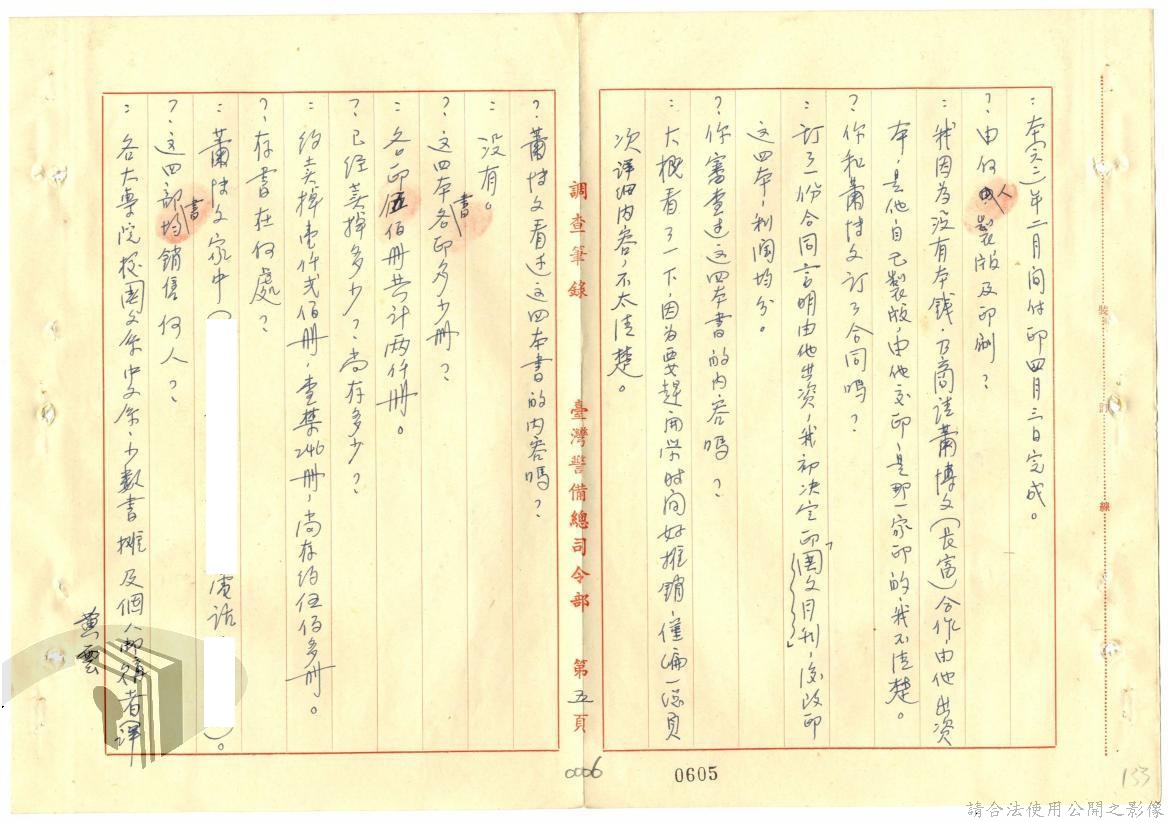 ：本(六三)年二月間付印四月三日完成。
？由何人製版及印刷？
：我因為沒有本錢，乃商請蕭博文(長富)合作，由他出資
本，是他自己製版，由他交印，是那一家印的，我不清楚。
？你和蕭博文訂了合同嗎？
：訂了一份合同言明由他出資，我初決定印「國文月刊」，後改印
這四本，利潤均分。
？你審查過這四本書的內容嗎？
：大概看了一下，因為要趕開學时间好推銷，僅編一總頁
次詳細内容，不太清楚。
調查筆錄
臺灣警備總司令部
第五頁
？蕭博文看过這四本書的内容嗎？
：没有。
？這四本書各印多少册？
：各印伍佰册共計兩仟册。
？已經賣掉多少？尚存多少？
：约賣掉壹仟弍佰册，查禁246册，尚存约伍佰多册。
？存書在何處？
：蕭博文家中(
電話
)。
？這四部書均銷售何人？
：各大專院校國文系中文系，少數書攤及個人郵購者詳
黄雲
裝
訂
線
0006
0605
133
請合法使用公開之影像